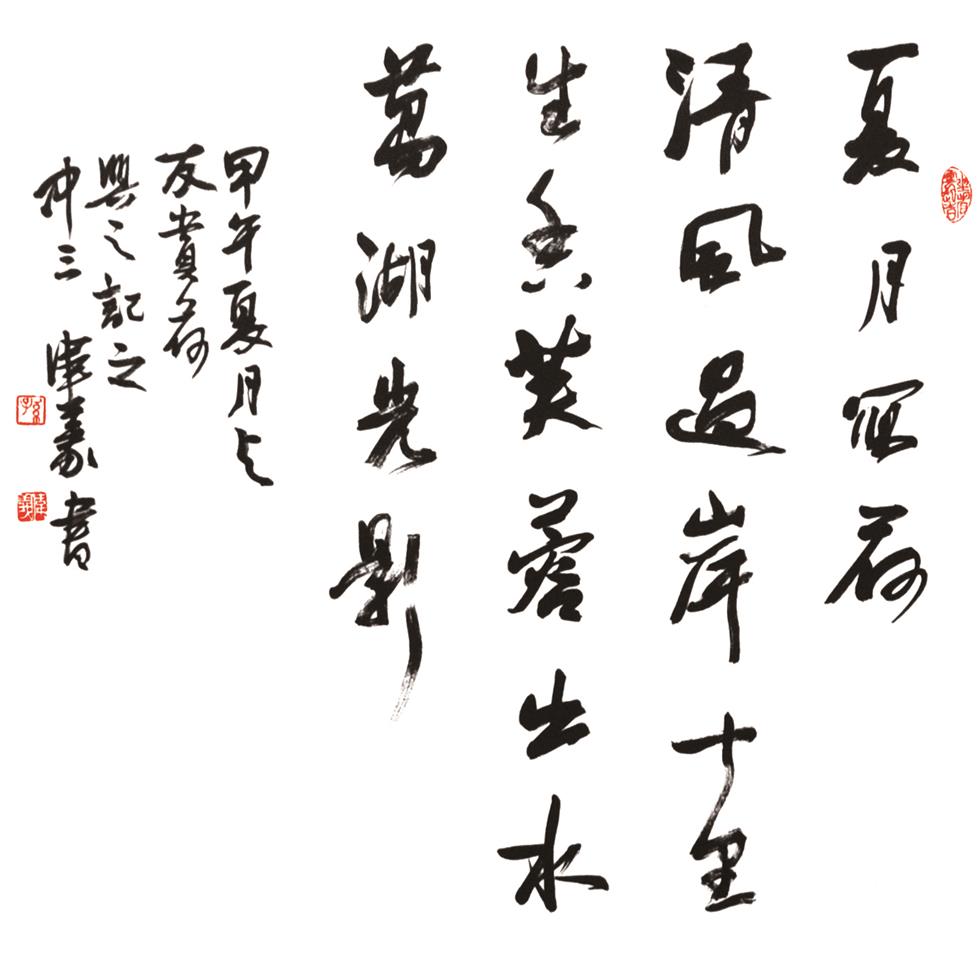 夏月荷
清風過岸十里
生香芙蓉出水
萬湖光影
甲午夏月与
友賞荷
興之記之
冲三義書